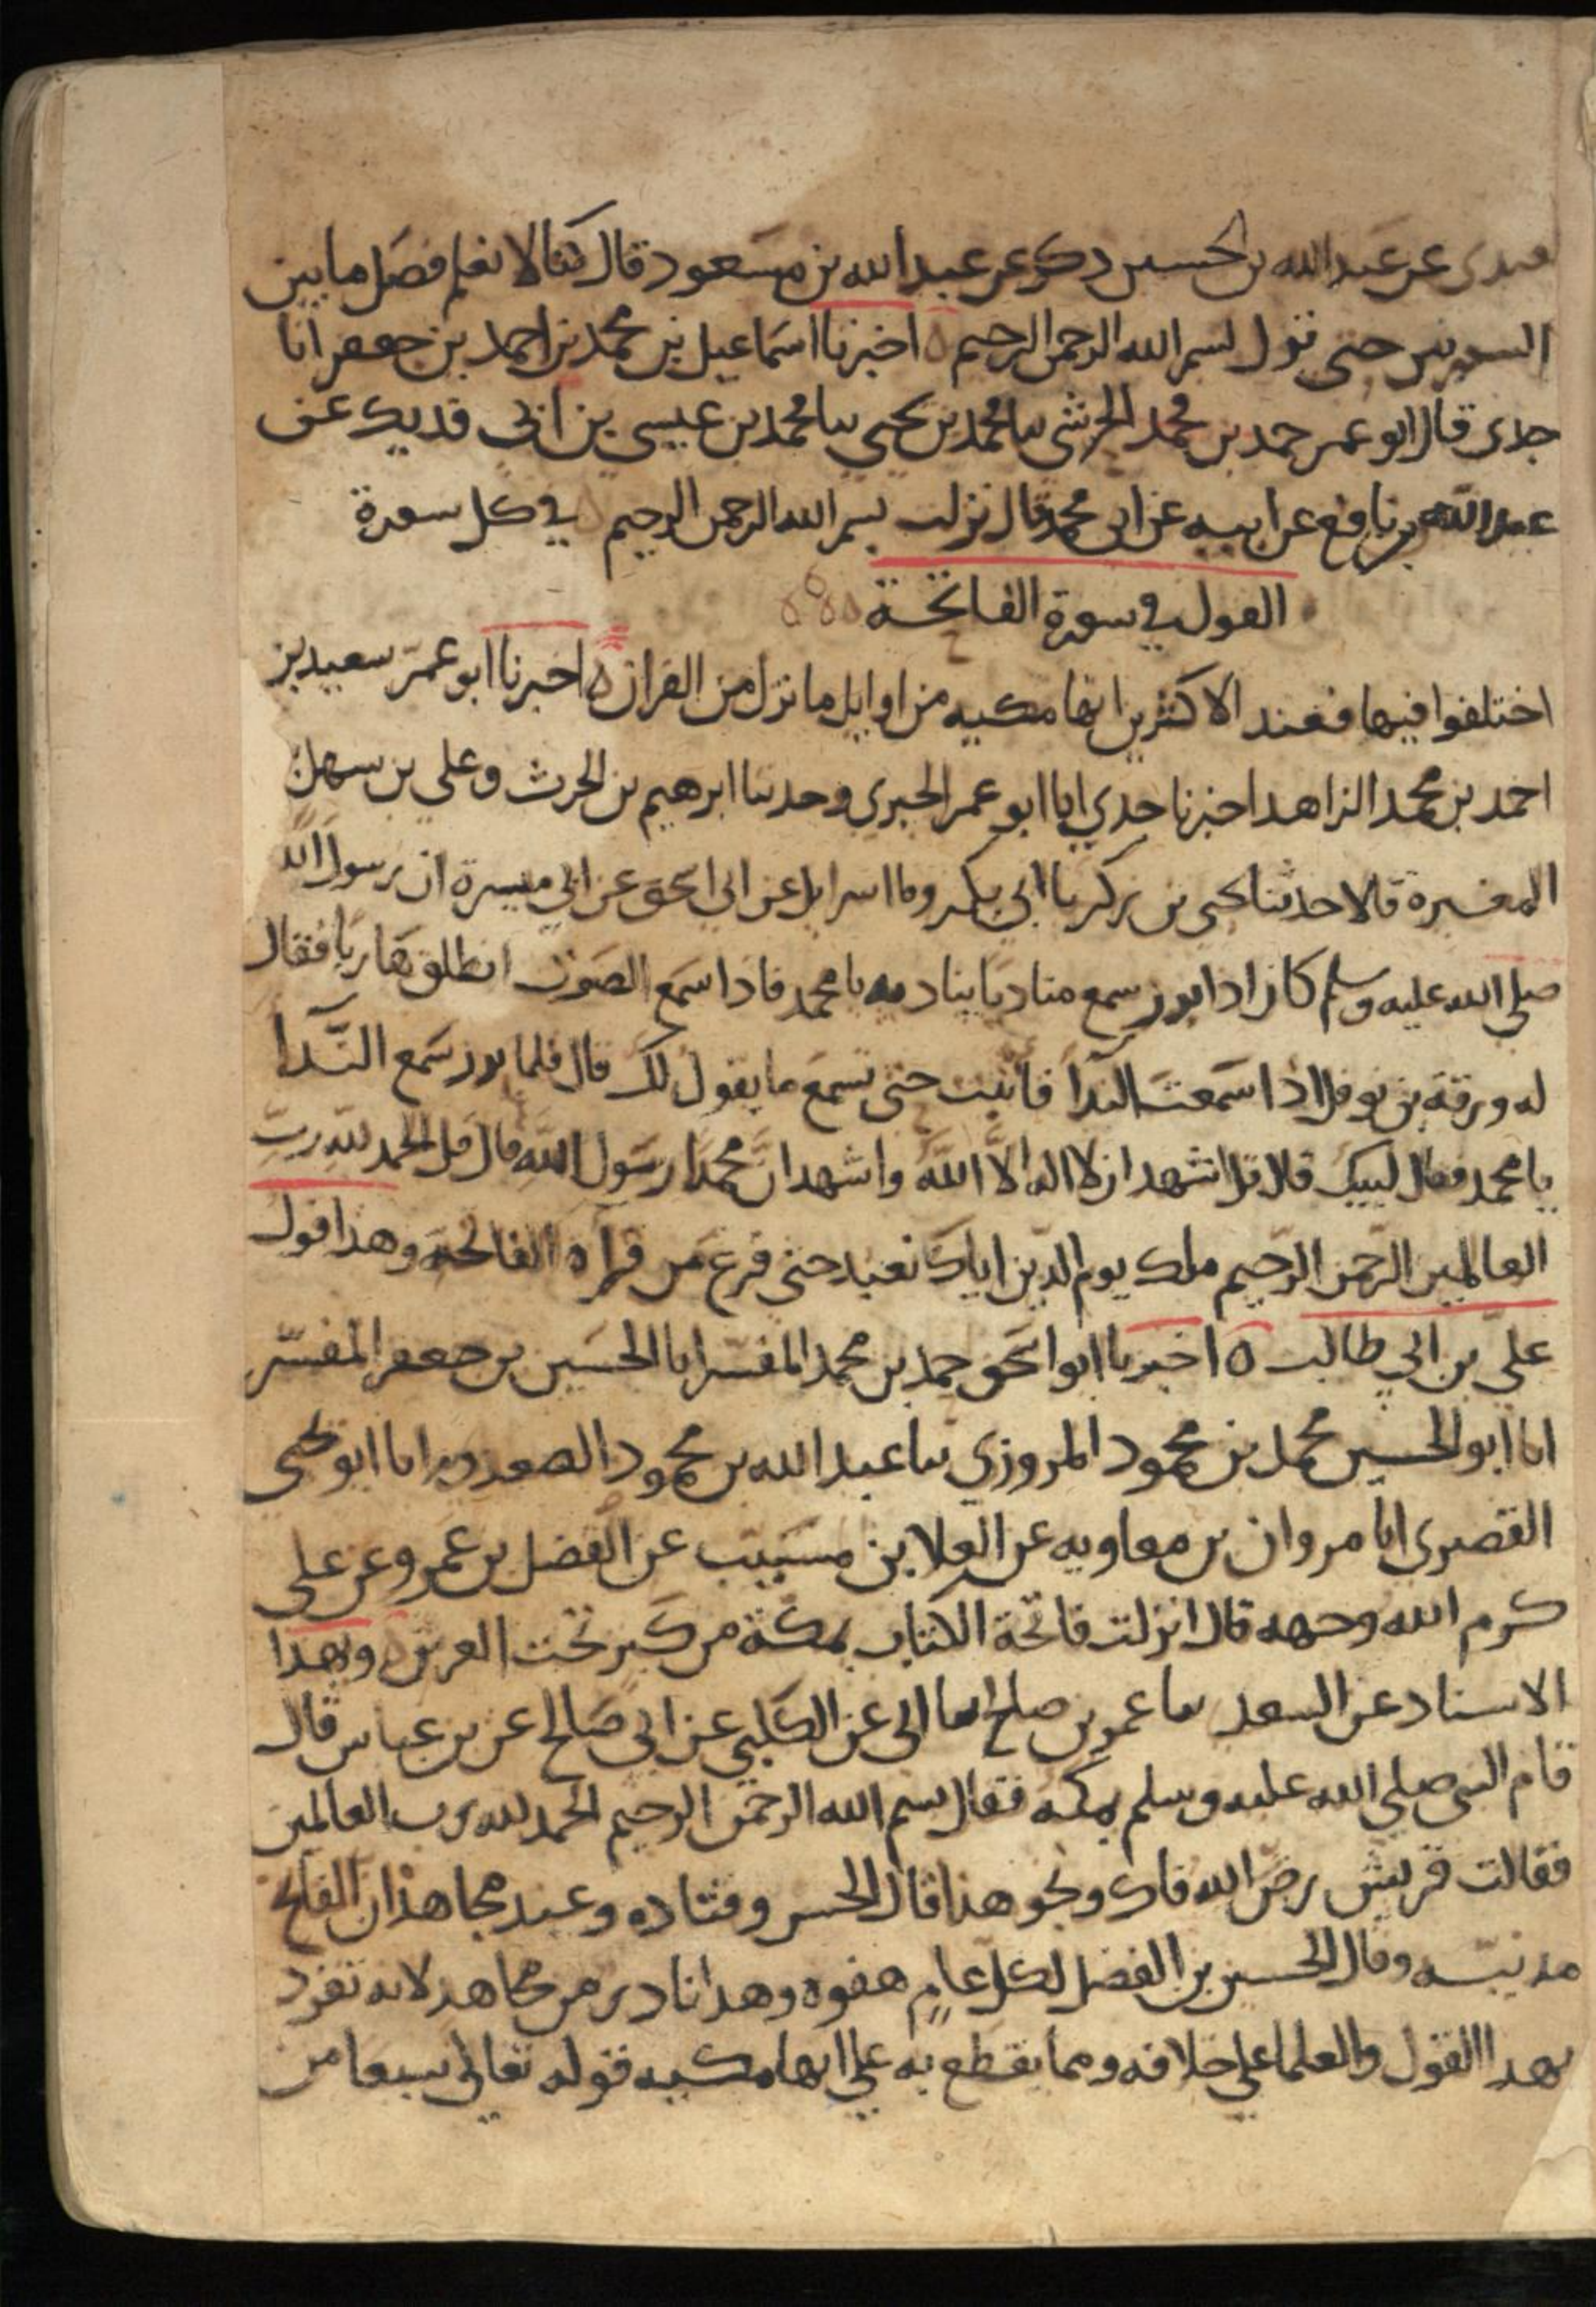 عبدى عن عبد الله بن الحسين ذكر عن عبد الله بن مسعود قال كنا لا نعلم فصل ما بين
السورتين حتى نزل بسم الله الرحمن الرحيم ه اخبرنا اسماعيل بن محمد بن احمد بن جعفر انا
جدى قال ابو عمر حمد بن محمد الحرشى ثنا محمد بن يحيى ثنا محمد بن عيسى بن ابى فديك عن
عبد الله بن نافع عن ابيه عن ابى محمد قال نزلت بسم الله الرحمن الرحيم في كل سورة
القول في سورة الفاتحة
اختلفوا فيها فعند الاكثرين انها مكيه من اوايل ما نزل من القران ه اخبرنا ابو عمر سعيد بن
احمد بن محمد الزاهد اخبرنا جدي انا ابو عمر الحيرى وحدثنا ابرهيم بن الحرث وعلي بن سهل
المغسرة قالا حدثنا يحيى بن زكريا ابي بكر وما اسرايل عن ابى اسحق عن ابي ميسرة ان رسول الله
صلى الله عليه وسلم كان اذا برز سمع مناديا يناديه يا محمد فاذا سمع الصوت انطلق هاربا فقال
له ورقة بن نوفل اذا سمعت الندا فاثبت حتى تسمع ما يقول لك قال فلما برز سمع الندا
يا محمد فقال لبيك قال قل اشهد ان لا اله الا الله واشهد ان محمدا رسول الله قال قل الحمد لله رب
العالمين الرحمن الرحيم ملك يوم الدين اياك نعبد حتى فرغ من قراه الفاتحة وهذا قول
علي بن ابي طالب ه اخبرنا ابو اسحق حمد بن محمد المفسر انا الحسين بن جعفر المفسر
انا ابو الحسين محمد بن محمود المروزي ثنا عبد الله بن محمود انا ابو يحيى
القصيرى انا مروان بن معاويه عن العلا بن مسيب عن الفضل بن عمرو عن على
كرم الله وجهه قال انزلت فاتحة الكتاب بمكة من كنز تحت العرش ه وبهذا
الاسناد عن السعد ثنا عمر بن صالح ثنا ابى عن الكلبي عن ابي صالح عن بن عباس قال
قام النبى صلى الله عليه وسلم بمكه فقال بسم الله الرحمن الرحيم الحمد لله رب العالمين
فقالت قريش رض الله فاك ونحو هذا قال الحسن وقتاده وعند مجاهد ان الفاتح
مدنيه وقال الحسين بن الفضل لكل عام هفوه وهذا نادر من مجاهد لانه تفرد
بهذا القول والعلما على خلافه ومما يقطع به على انها مكيه قوله تعالى سبعا من